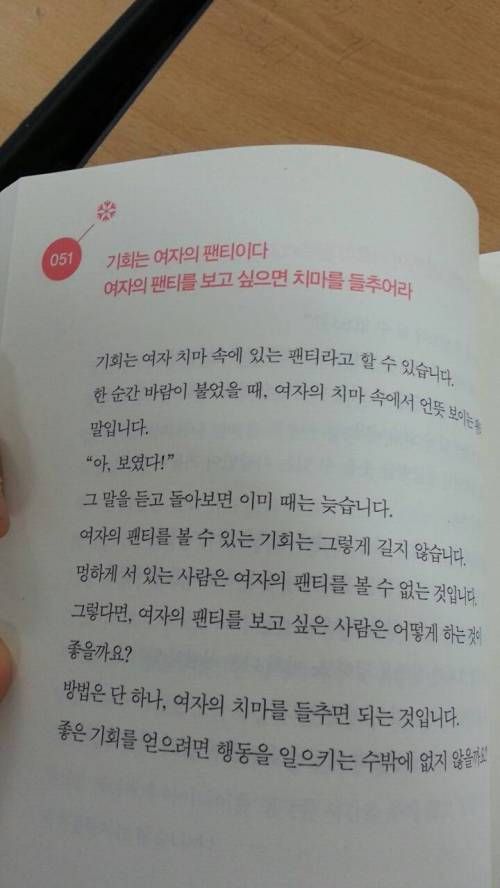 051
기회는 여자의 팬티이다
여자의 팬티를 보고 싶으면 치마를 들추어라
기회는 여자 치마 속에 있는 팬티라고 할 수 있습니다.
한 순간 바람이 불었을 때, 여자의 치마 속에서 언뜻 보이는
말입니다.
“아, 보였다!”
그 말을 듣고 돌아보면 이미 때는 늦습니다.
여자의 팬티를 볼 수 있는 기회는 그렇게 길지 않습니다.
멍하게 서 있는 사람은 여자의 팬티를 볼 수 없는 것입니다.
그렇다면, 여자의 팬티를 보고 싶은 사람은 어떻게 하는 것이
좋을까요?
방법은 단 하나, 여자의 치마를 들추면 되는 것입니다.
좋은 기회를 얻으려면 행동을 일으키는 수밖에 없지 않을까요?